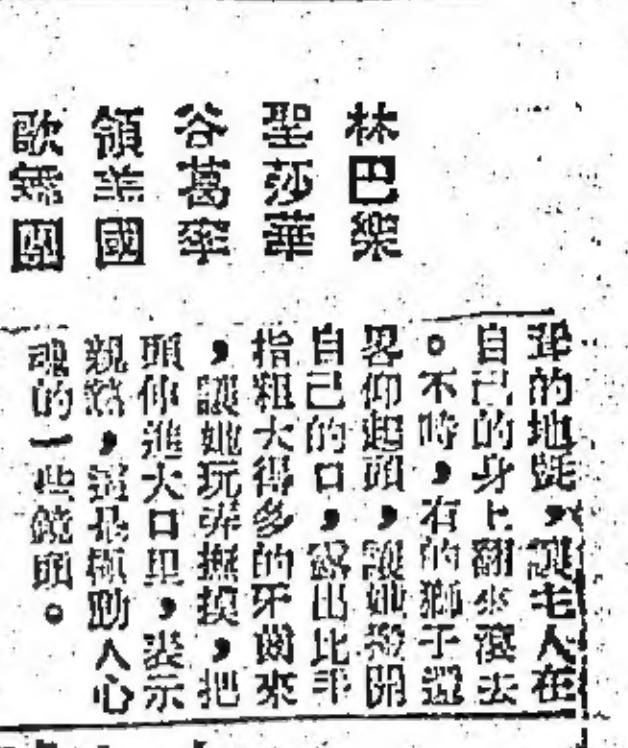 林巴樂
聖莎華
谷葛率
領美國
歌舞團
茸的地毯,讓人在
自己的身上翻來滾去
。不時,有的獅子還
畧仰起頭,讓她開
自己的口,露出比手
指粗大得多的牙齒來
,讓她玩弄撫摸,把
頭伸進大口里,表示
親熱,這是極動人心
魂的一些鏡頭。